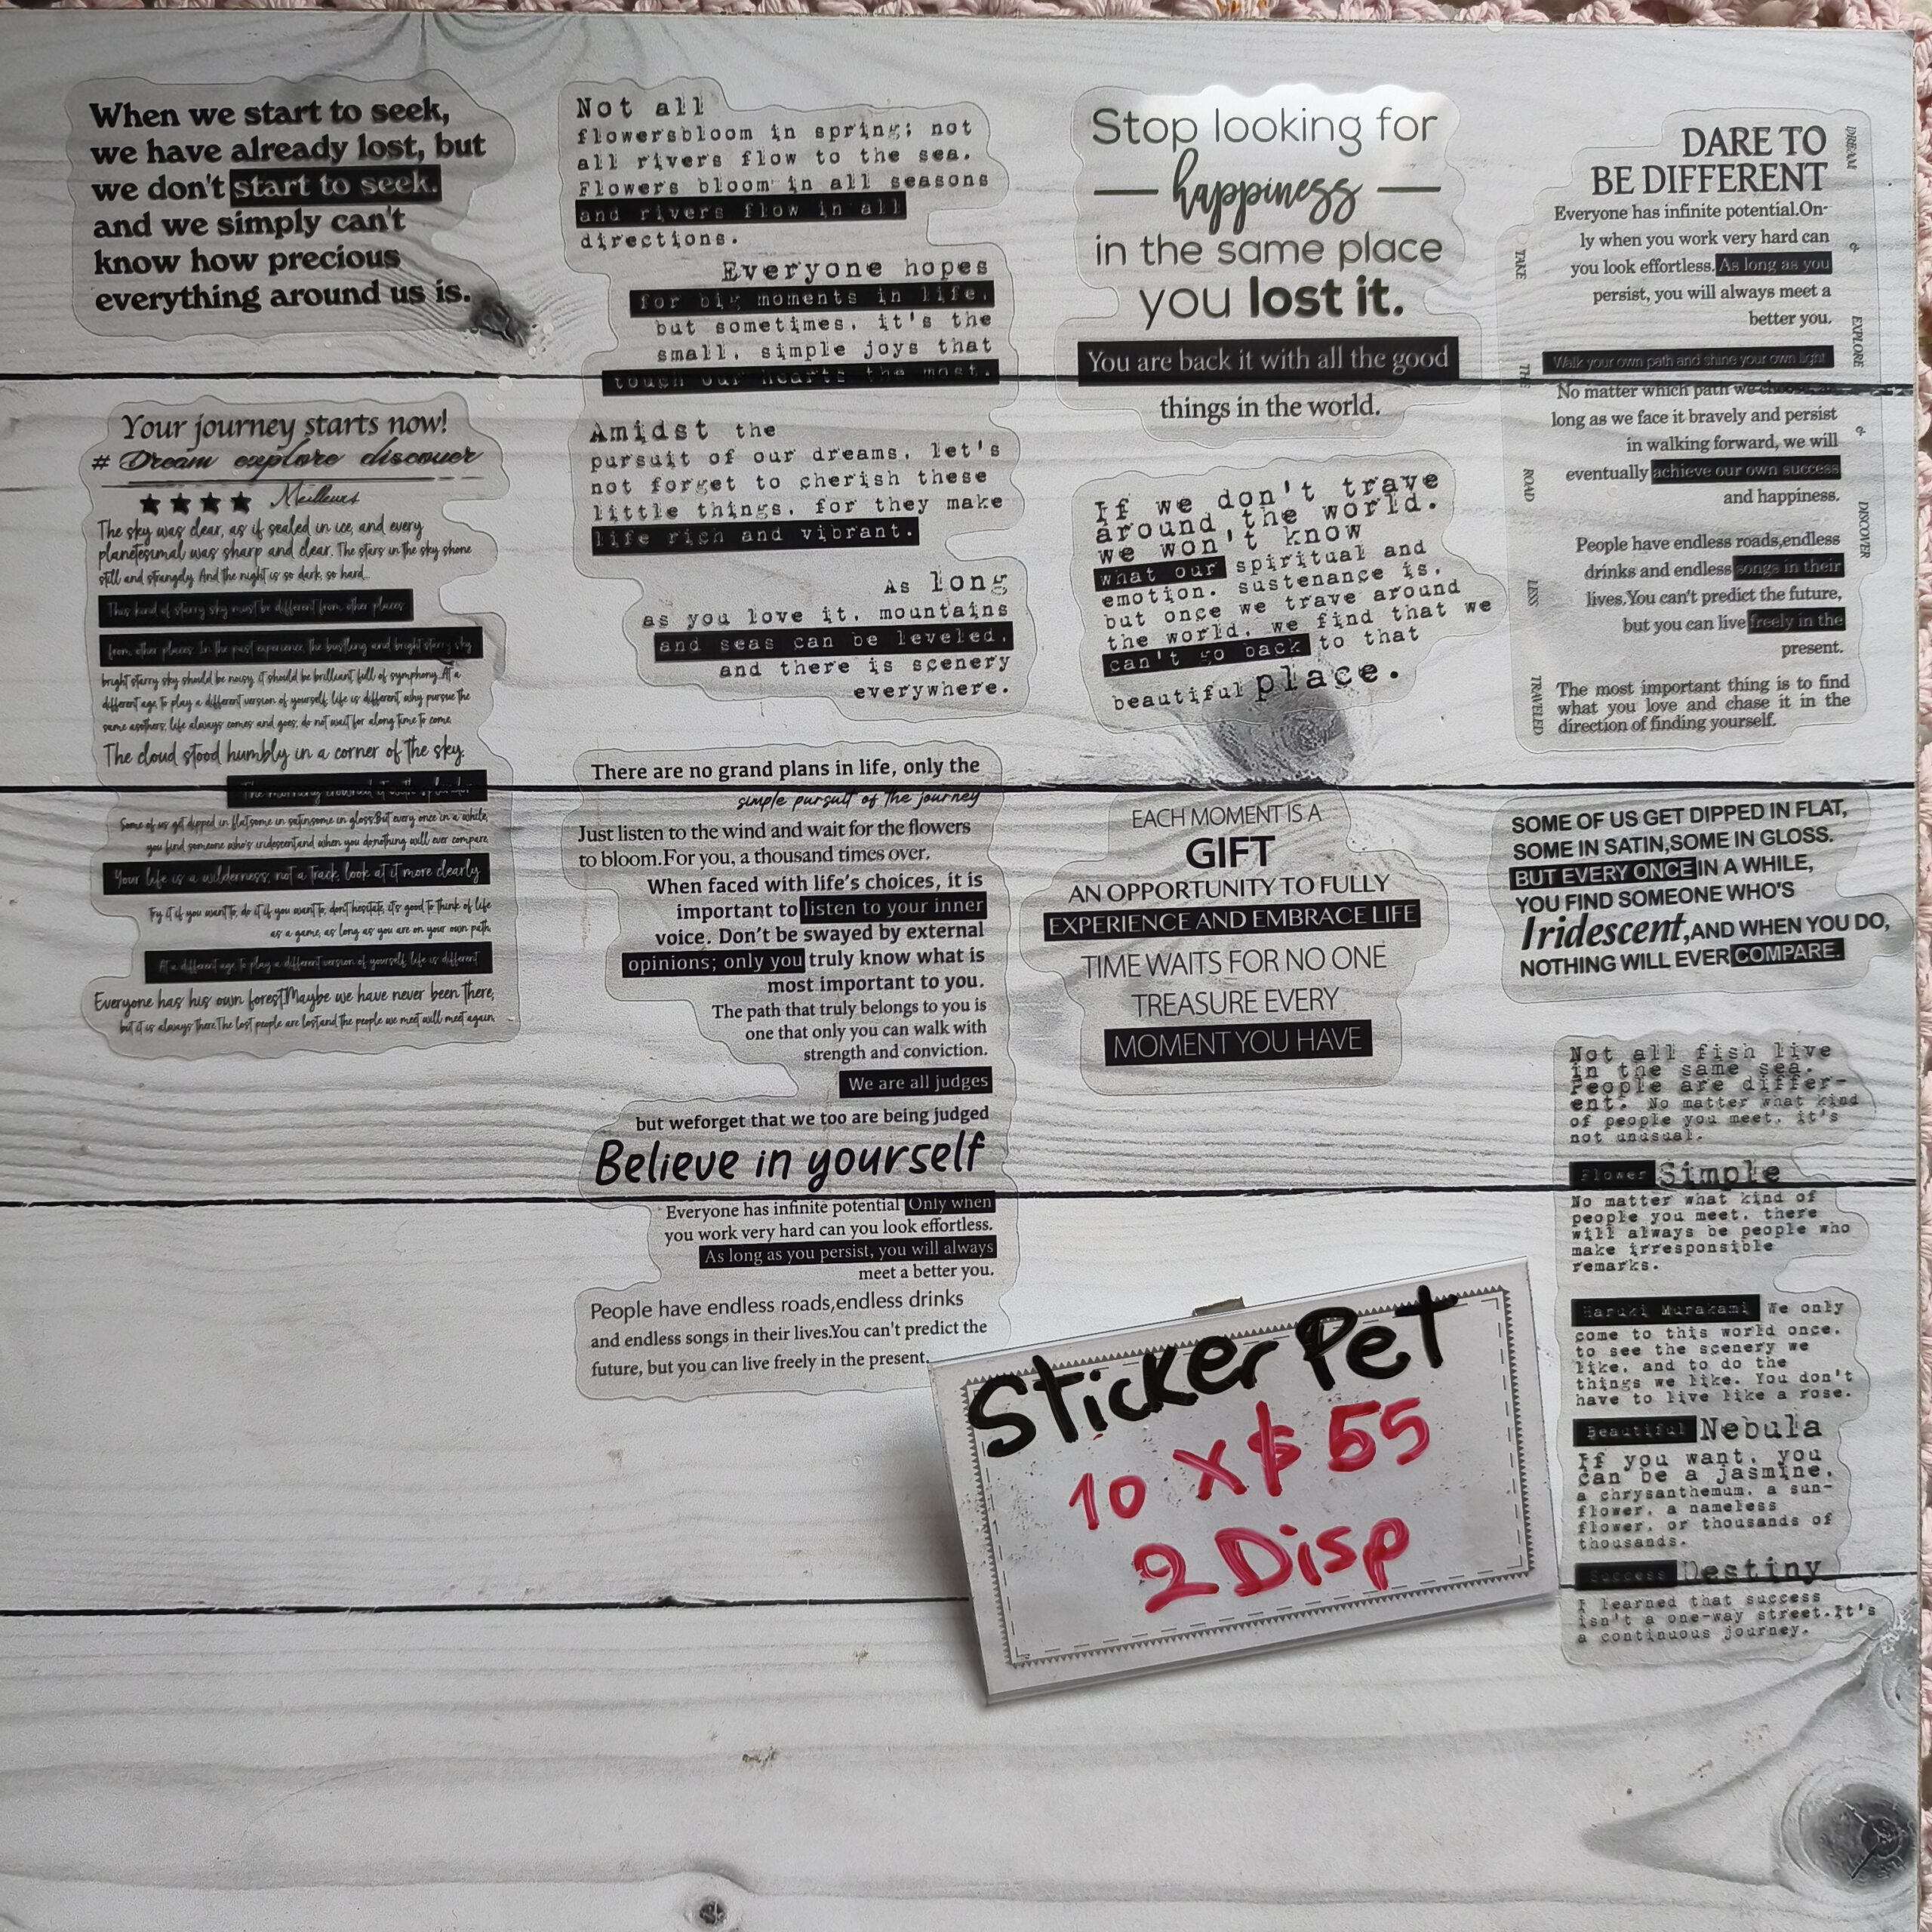 When we start to seek,
we have already lost, but
we don't start to seek.
and we simply can't
know how precious
everything around us is.
Your journey starts now!
# Dream explore discover
★★★★ Meilleurs
The sky was clear, as if sealed in ice, and every
planetesimal was sharp and clear. The stars in the sky shone
still and strangely. And the night is so dark, so hard...
This kind of starry sky must be different from other places
from other places. In the past experience, the bustling and bright starry sky
bright starry sky should be noisy. it should be brilliant. full of symphony. At a
different age, to play a different version of yourself, life is different, why pursue the
same asothers, life always comes and goes, do not wait for along time to come.
The cloud stood humbly in a corner of the sky.
The morning crowned it
Some of us get dipped in flat,some in satin,some in gloss.But every once in a while,
you find someone who's iridescent,and when you do,nothing will ever compare.
Your life is a wilderness, not a track, look at it more clearly
Try it if you want to, do it if you want to, don't hesitate, it's good to think of life
as a game, as long as you are on your own path.
At a different age to play a different version of yourself, life is different
Everyone has his own forest.Maybe we have never been there,
but it is always there.The lost people are lost,and the people we meet will meet again
Not all
flowersbloom in spring; not
all rivers flow to the sea.
Flowers bloom in all seasons
and rivers flow in all
directions.
Everyone hopes
for big moments in life,
but sometimes, it's the
small, simple joys that
touch our hearts the most.
Amidst the
pursuit of our dreams, let's
not forget to cherish these
little things, for they make
life rich and vibrant.
As long
as you love it, mountains
and seas can be leveled,
and there is scenery
everywhere.
There are no grand plans in life, only the
simple pursuit of the journey
Just listen to the wind and wait for the flowers
to bloom.For you, a thousand times over.
When faced with life's choices, it is
important to listen to your inner
voice. Don't be swayed by external
opinions; only you truly know what is
most important to you.
The path that truly belongs to you is
one that only you can walk with
strength and conviction.
We are all judges
but weforget that we too are being judged
Believe in yourself
Everyone has infinite potential Only when
you work very hard can you look effortless.
As long as you persist, you will always
meet a better you.
People have endless roads,endless drinks
and endless songs in their lives.You can't predict the
future, but you can live freely in the present.
Stop looking for
happiness
in the same place
you lost it.
You are back it with all the good
things in the world.
If we don't trave
around the world.
we won't know
what our spiritual and
emotion. sustenance is.
but once we trave around
the world, we find that we
can't go back to that
beautiful place.
EACH MOMENT IS A
GIFT
AN OPPORTUNITY TO FULLY
EXPERIENCE AND EMBRACE LIFE
TIME WAITS FOR NO ONE
TREASURE EVERY
MOMENT YOU HAVE
DARE TO
BE DIFFERENT
Everyone has infinite potential.On-
ly when you work very hard can
you look effortless. As long as you
persist, you will always meet a
better you.
Walk your own path and shine your own light
No matter which path we
long as we face it bravely and persist
in walking forward, we will
eventually achieve our own success
and happiness.
People have endless roads,endless
drinks and endless songs in their
lives.You can't predict the future,
but you can live freely in the
present.
The most important thing is to find
what you love and chase it in the
direction of finding yourself.
TAKE THE ROAD LESS TRAVELED
DREAM & EXPLORE & DISCOVER
SOME OF US GET DIPPED IN FLAT,
SOME IN SATIN,SOME IN GLOSS.
BUT EVERY ONCE IN A WHILE,
YOU FIND SOMEONE WHO'S
Iridescent,AND WHEN YOU DO,
NOTHING WILL EVER COMPARE.
Not all fish live
in the same sea.
People are differ-
ent. No matter what kind
of people you meet, it's
not unusual.
Flower Simple
No matter what kind of
people you meet, there
will always be people who
make irresponsible
remarks.
Haruki Murakami We only
come to this world once,
to see the scenery we
like, and to do the
things we like. You don't
have to live like a rose.
Beautiful Nebula
If you want, you
can be a jasmine,
a chrysanthemum, a sun-
flower, a nameless
flower, or thousands of
thousands.
Success Destiny
I learned that success
isn't a one-way street.It's
a continuous journey.
Sticker Pet
10 x $55
2 Disp